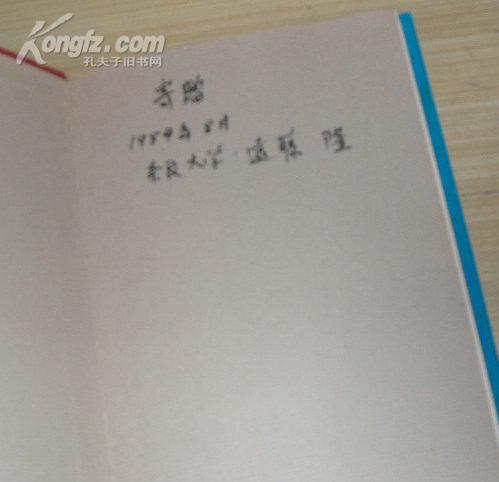 Kongfz.com
孔夫子旧书网
寄贈
1989年8月
奈良大学・遠藤 隆